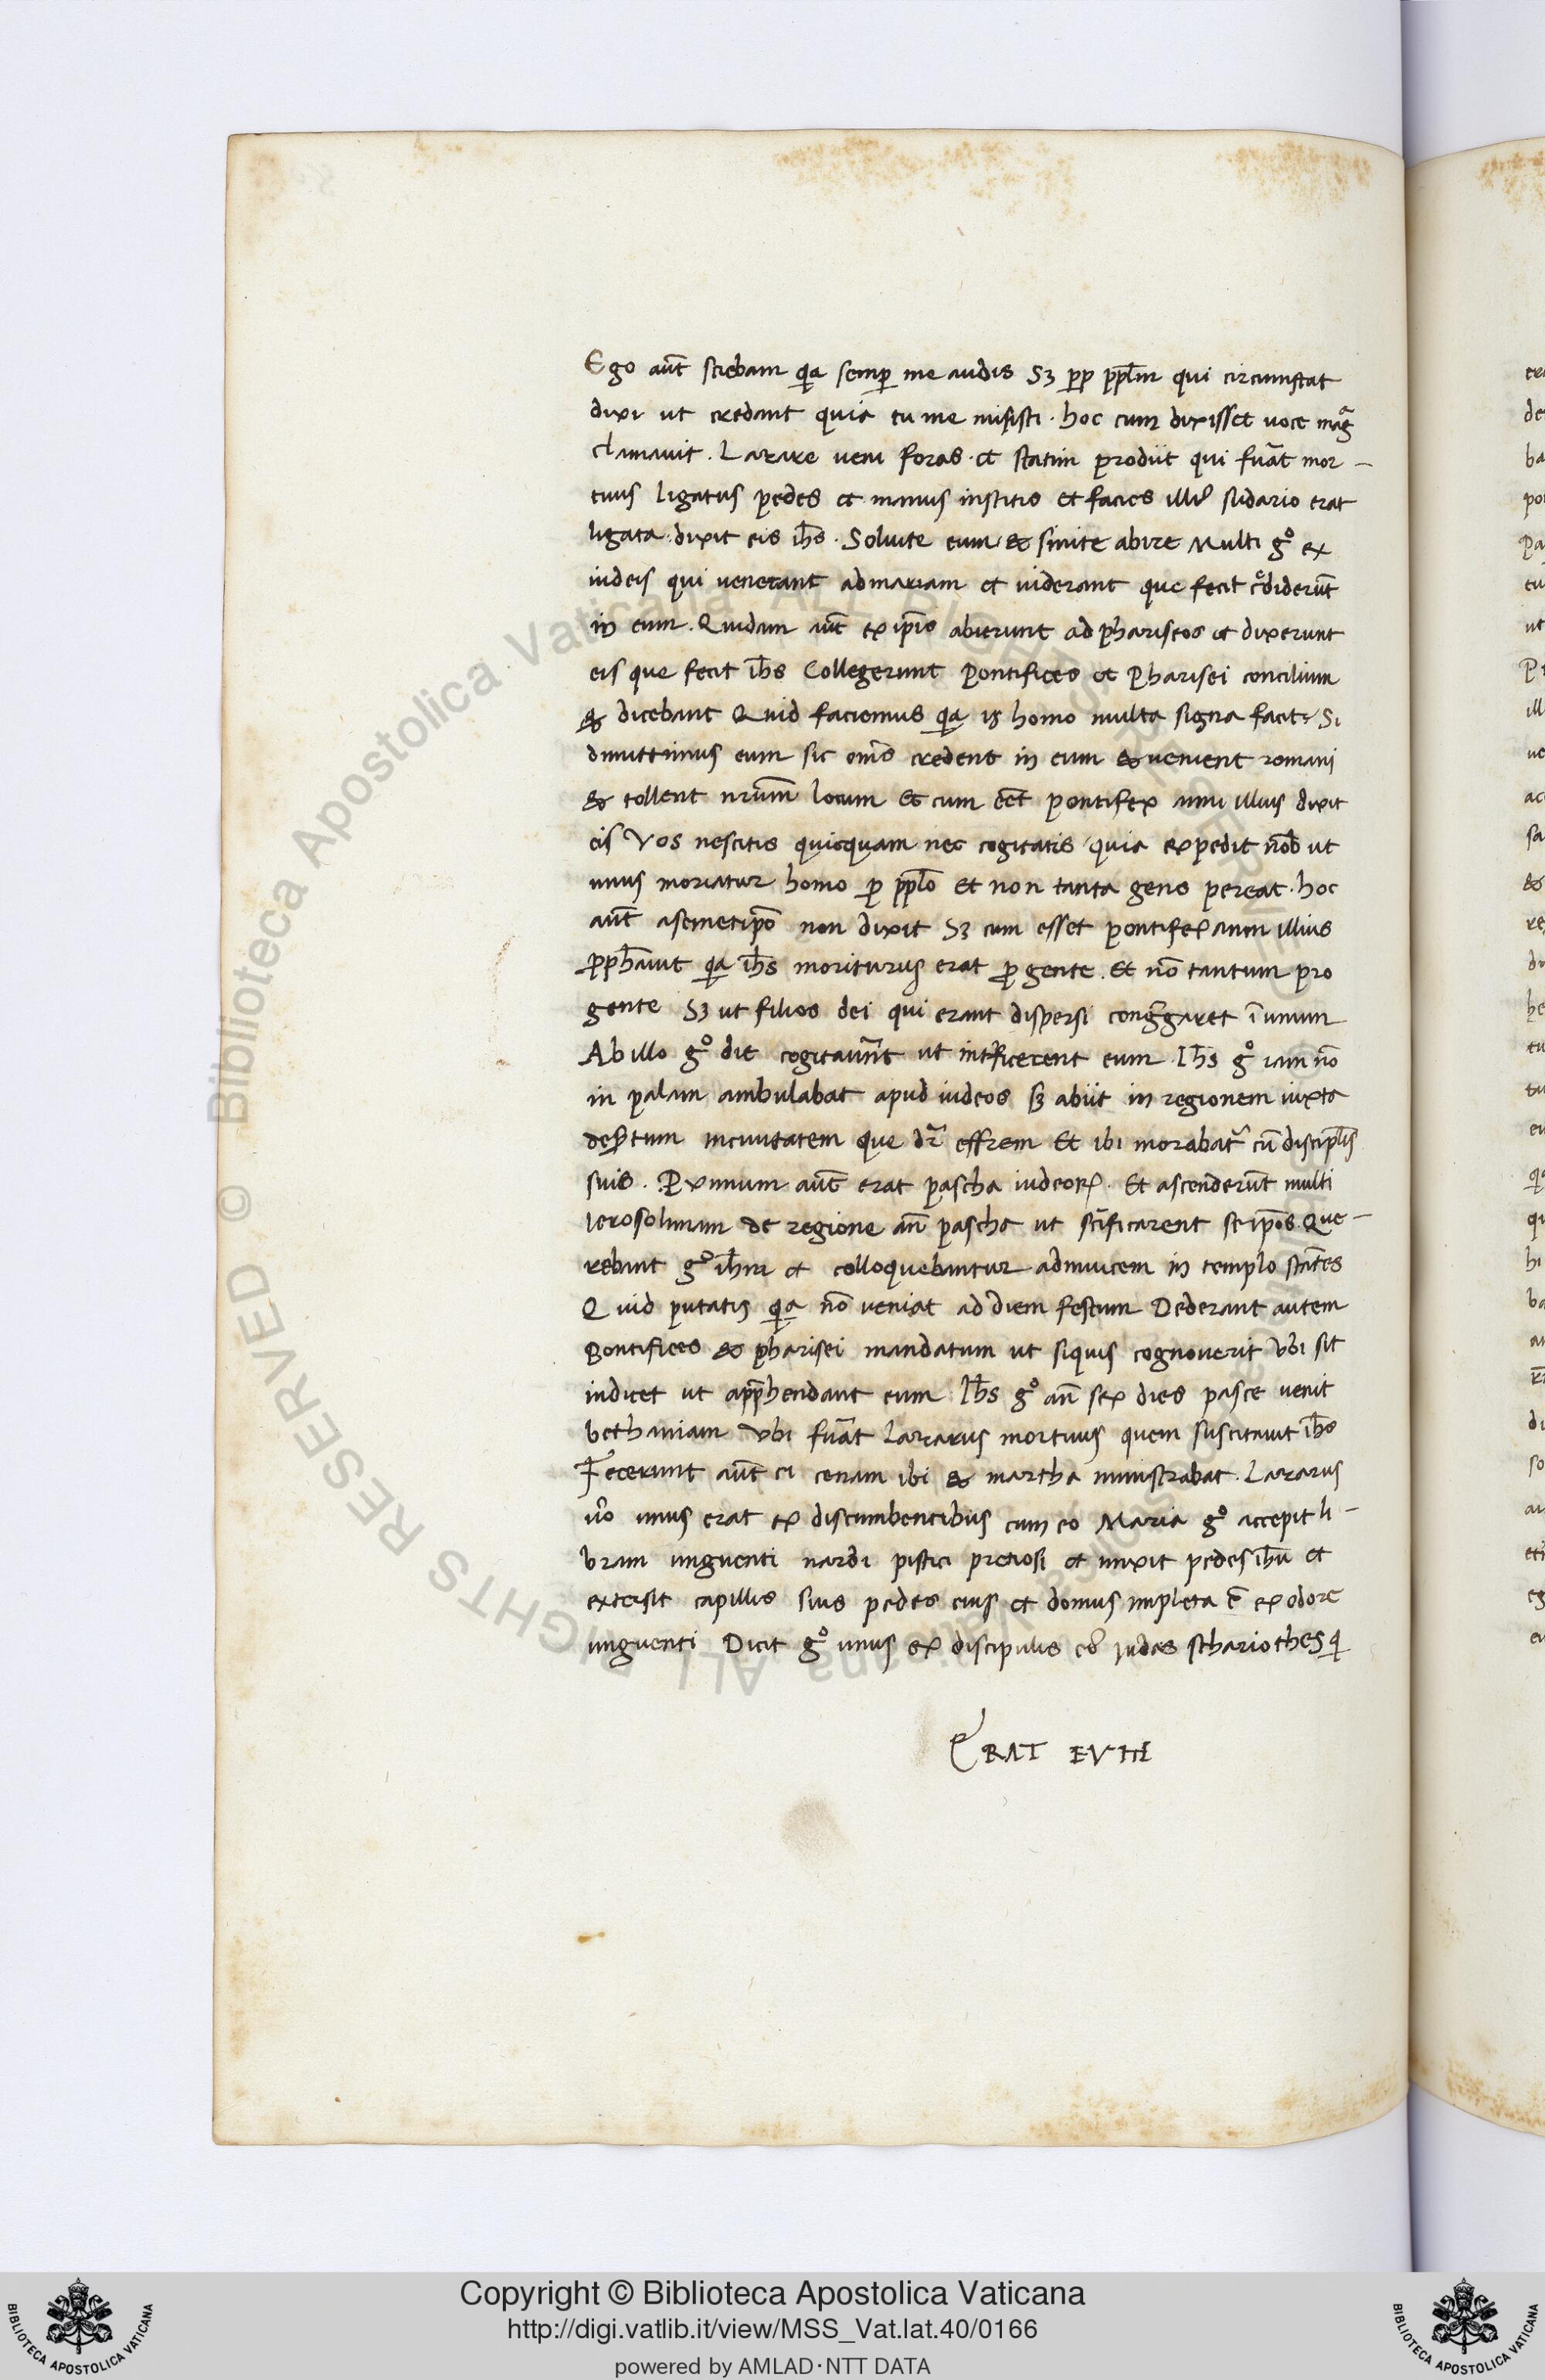 Ego aut̄ sciebam q̄a semp̱ me audis Sꝫ pp̱ pp̄lm qui circumstat
dixi ut credant quia tu me misisti · hoc cum dixisset uoce magᵃ
clamauit . Lazare veni foras · et statim prodiit qui fu͛at mor-
tuus ligatus pedes et manus institis et facies illiꝰ sudario erat
ligata · dixit eis ih̄s . Soluite eum & sinite abire Multi gͦ ex
iudeis qui venerant ad mariam et uiderant que fecit cͤdiderūt
in eum . Quidam aūt ex ip̄is abierunt ad phariseos et dixerunt
eis que fecit ih̄s Collegerunt pontifices et pharisei concilium
& dicebant Quid faciemus q̄a is homo multa signa facit Si
dimittimus eum sic om̄s credens in eum & uenient romani
& tollent nr̄um locum Et cum eēt pontifex anni illius dixit
eis Vos nescitis quicquam nec cogitatis quia expedit nob̄ ut
unus moriatur homo p̱ pp̄lo et non tanta gens pereat · hoc
aūt a semetip̄o non dixit Sꝫ cum esset pontifex anni illius
ꝓph̄auit q̄a ih̄s moriturus erat ꝓ gente . Et nō tantum pro
gente Sꝫ ut filios dei qui erant dispersi cong͛garet ī unum
Ab illo gͦ die cogitauer̄t ut int͛ficerent eum . Ih̄s gͦ iam nō
in palam ambulabat apud iudeos sꝫ abiit in regionem iuxta
des͛tum in ciuitatem que dr̄ effrem Et ibi morabat᷑ cū discipl̄is
suis . Proximum aūt erat pascha iudeoꝝ . Et ascenderūt multi
Ierosolimam de regione an̄ pascha ut sc̄ificarent se ip̄os Que-
rebant gͦ ih̄m et colloquebantur ad inuicem in templo stātes
Quid putatis q̄a nō ueniat ad diem festum Dederant autem
Pontifices & pharisei mandatum ut siquis cognouerit Vbi sit
indicet ut app̄hendant eum Ih̄s gͦ an̄ sex dies pasce venit
bethaniam Vbi fu͛at Lazarus mortuus quem suscitauit ih̄s
Fecerunt aūt ei cenam ibi & martha ministrabat . Lazarus
uͦo unus erat ex discumbentibus cum eo Maria gͦ accepit li-
bram unguenti nardi pistici pretiosi et unxit pedes ih̄u et
extersit capillis suis pedes eius et domus impleta ē ex odore
unguenti Dicit gͦ unus ex discipulis eiꝰ Iudas schariothes q̇
ERAT EVM
Copyright © Biblioteca Apostolica Vaticana
http://digi.vatlib.it/view/MSS_Vat.lat.40/0166
powered by AMLAD·NTT DATA